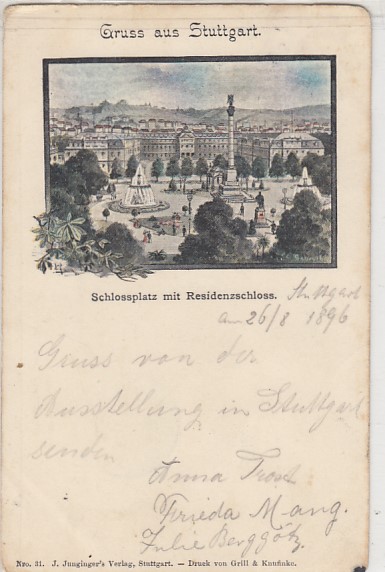 Gruss aus Stuttgart.
Schlossplatz mit Residenzschloss.
Stuttgart
am 26/8 1896
Gruss von der
Ausstellung in Stuttgart
senden
Anna Trost
Frieda Mang.
Julie Berggötz.
Nro. 31. J. Junginger's Verlag, Stuttgart. — Druck von Grill &